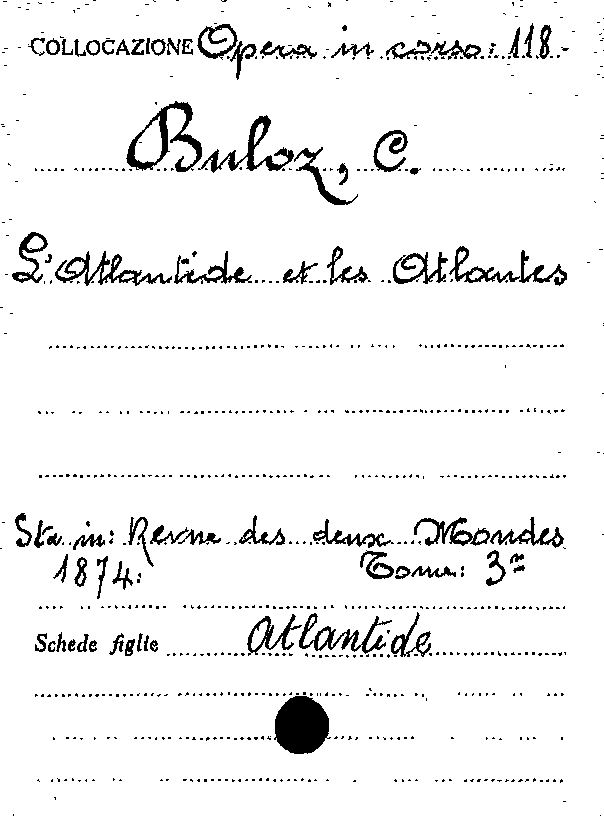 COLLOCAZIONE Opera in corso: 118.
Buloz, C.
L'Atlantide et les Atlantes
Sta in: Revue des deux Mondes
1874. Tome: 3=
Schede figlie Atlantide